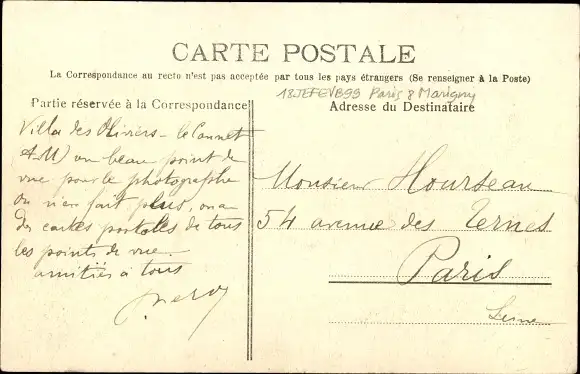 CARTE POSTALE
La Correspondance au recto n'est pas acceptée par tous les pays étrangers (Se renseigner à la Poste)
18JEFEVB99 Paris 8 Marigny
Partie réservée à la Correspondance
Adresse du Destinataire
Villa des Oliviers - le Cannet
(A-M) un beau point de
vue pour le photographe
on n'en fait plus, on a
des cartes postales de tous
les points de vue.
amitiés à tous
Monsieur Hourseau
54 avenue des Ternes
Paris
Seine